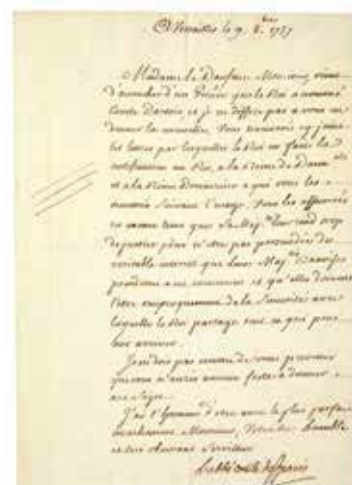 A Versailles le 9. 8.bre 1757
Madame la Dauphine, Monsieur, vient
d'accoucher d'un Prince que le Roi a nommé
Comte d'Artois et je ne differe pas a vous en
donner la nouvelle. Vous trouverez cy joint
les lettres par lesquelles le Roi en fait la
notification au Roi, a la Reine de
et a la Reine Douairiere a que vous les
suivant l'usage. Vous les assurerez
en même tems que Sa Maj.té leur rend trop
de justice pour n'être pas persuadée du
veritable interet que leurs Maj.tés
prendront a cet evenement et qu'elles doivent
l'être reciproquement de la sincerité avec
laquelle le Roi partage tout ce qui peut
leur arriver.
Je ne dois pas omettre de vous prevenir
que vous n'aurés aucune feste a donner
a ce sujet.
J'ai l'honneur d'être avec le plus parfait
attachement, Monsieur, Votre très humble
et très obeissant Serviteur